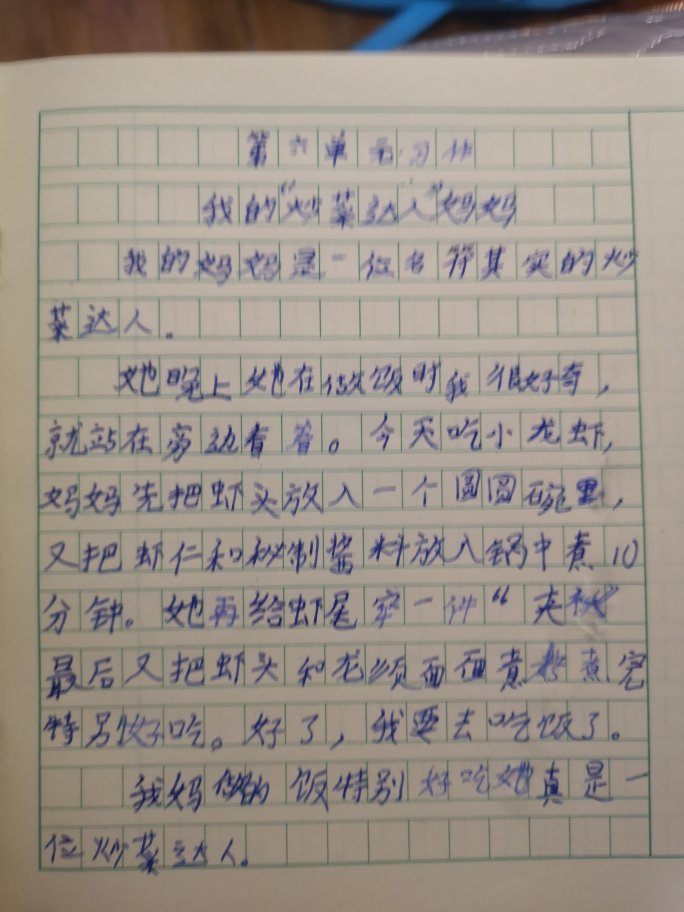 第六单元习作
我的“炒菜达人”妈妈
我的妈妈是一位名符其实的炒
菜达人。
她晚上她在做饭时我很好奇，
就站在旁边看着。今天吃小龙虾，
妈妈先把虾头放入一个圆圆碗里，
又把虾仁和秘制酱料放入锅中煮10
分钟。她再给虾尾穿一件“夹袄”
最后又把虾头和龙须面面煮煮完
特另好吃。好了，我要去吃饭了。
我妈做的饭特别好吃她真是一
位炒菜达人。